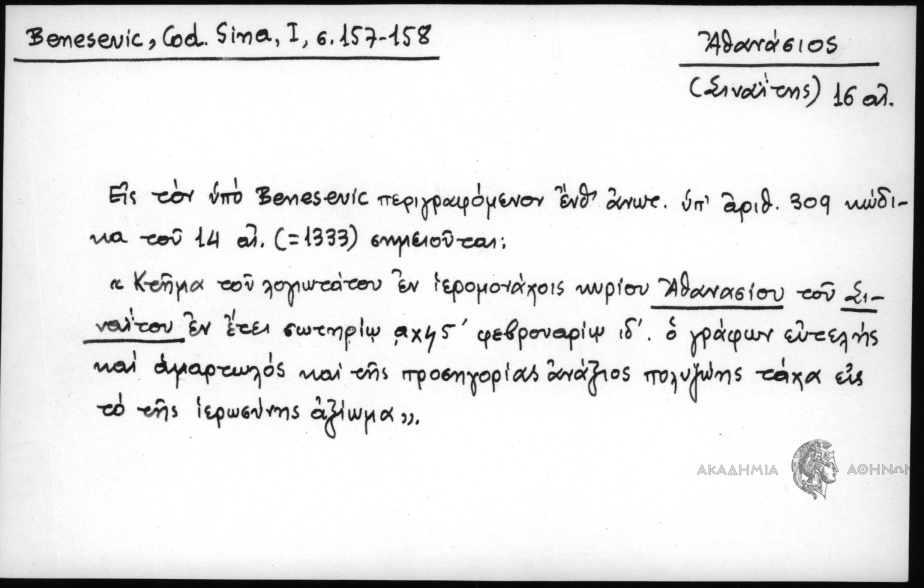 Benesevic, Cod. Sina, I, σ. 157-158
Ἀθανάσιος
(Σιναΐτης) 16 αἰ.
Εἰς τόν ὑπό Benesevic περιγραφόμενον ἔνθ' ἀνωτ. ὑπ' ἀριθ. 309 κώδι-
κα τοῦ 14 αἰ. (=1333) σημειοῦται:
« Κτῆμα τοῦ λογιωτάτου ἐν ἱερομονάχοις κυρίου Ἀθανασίου τοῦ Σι-
ναΐτου ἐν ἔτει σωτηρίῳ ͵αχϟς' φεβρουαρίῳ ιδ'. ὁ γράφων εὐτελής
καί ἁμαρτωλός καί τῆς προσηγορίας ἀνάξιος πολυζώης τάχα εἰς
τό τῆς ἱερωσύνης ἀξίωμα».
ΑΚΑΔΗΜΙΑ ΑΘΗΝΩΝ